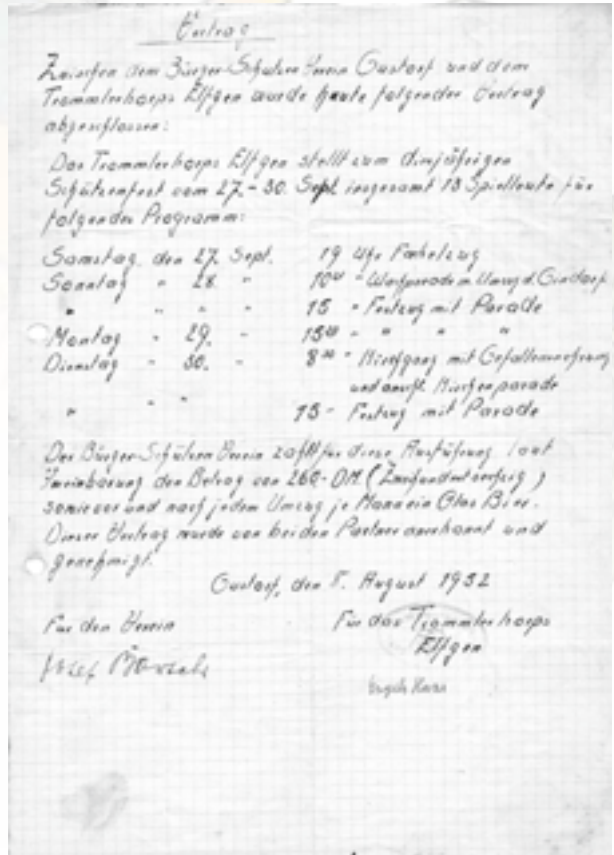 Vertrag
Zwischen dem Bürger-Schützen Verein Gustorf und dem
Trommlerkorps Elfgen wurde heute folgender Vertrag
abgeschlossen:
Das Trommlerkorps Elfgen stellt zum diesjährigen
Schützenfest vom 27.-30. Sept. insgesamt 13 Spielleute für
folgendes Programm:
Samstag den 27. Sept. 19 Uhr Fackelzug
Sonntag " 28. " 10 " u. Umzug d. Gindorf
" " " 15 " Festzug mit Parade
Montag " 29. " 15 " " " "
Dienstag " 30. " 8 " Kirchgang mit Gefallenenehrung
und anschl. Kirchenparade
" " " 15 " Festzug mit Parade
Der Bürger-Schützen Verein zahlt für diese Ausführung laut
Vereinbarung den Betrag von 260.-DM. (Zweihundertsechzig)
sowie vor und nach jedem Umzug je Mann ein Glas Bier.
Dieser Vertrag wurde von beiden Partner anerkannt und
genehmigt.
Gustorf, den August 1952
Für den Verein Für das Trommlerkorps
Elfgen
Josef